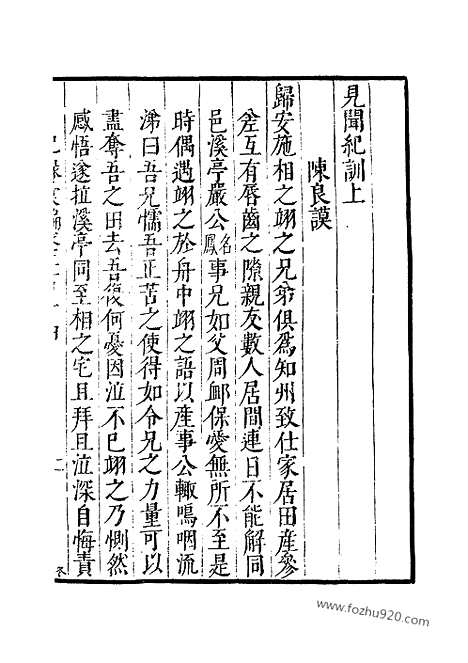 見聞紀訓上
陳良謨
歸安施相之翊之兄弟俱爲知州致仕家居田產參
差互有唇齒之隙親友數人居間連日不能解同
邑溪亭嚴公名鳳事兄如父周卹保愛無所不至是
時偶遇翊之於舟中翊之語以產事公輙嗚咽流
涕曰吾兄懦吾正苦之使得如令兄之力量可以
盡奪吾之田去吾復何憂因泣不已翊之乃惻然
感悟遂拉溪亭同至相之宅且拜且泣深自悔責
www.fozhu920.com